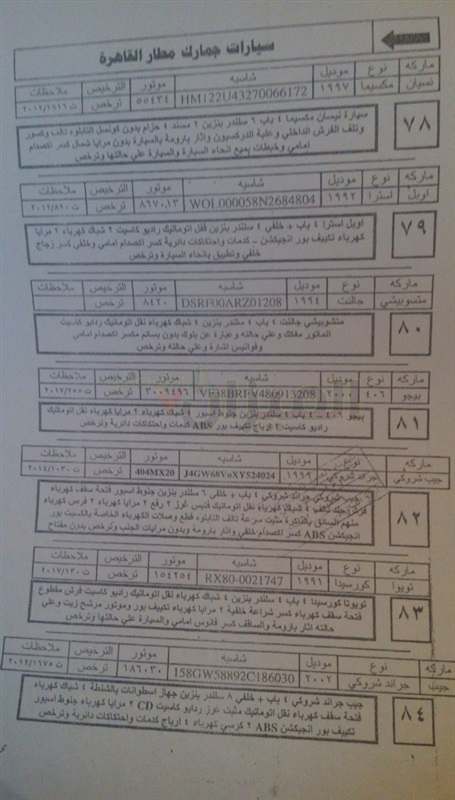 سيارات جمارك مطار القاهرة
ماركه نوع موديل شاسيه موتور الترخيص ملاحظات
نسيان مكسيما ١٩٩٧ HM122U43270066172 ٥٥٤٣٤ ترخص
٧٨
سيارة نيسان مكسيما ٤ باب ٦ سلندر بنزين ٢ مسند ٤ حزام بدون كونسل التابلوه تالف وكسور
وتلف الفرش الداخلي وعلبة الدركسيون واثار بارومة بالسيارة بدون مرايا شمال كسر اكصدام
امامي وخبطات بميع انحاء السيارة والسيارة علي حالتها وترخص
ماركه نوع موديل شاسيه موتور الترخيص ملاحظات
اوبل استرا ١٩٩٢ WOL000058N2684804 ترخص
٧٩
اوبل استرا ٤ باب + خلفي ٤ سلندر بنزين فقل اتوماتيك راديو كاسيت ٢ شباك كهرباء ٢ مرايا
كهرباء تكييف بور انجيكشن - كدمات واحتكاكات دائرية كسر اكصدام امامي وخلفي كسر زجاج
خلفي وتطبيق بانحاء السيارة وترخص
ماركه نوع موديل شاسيه موتور الترخيص ملاحظات
متسوبيشي جالنت ١٩٩٤ DSRE00ARZ01208 ٨٤٢٠ ترخص
٨٠
متسوبيشي جالنت ٤ باب ٤ سلندر بنزين ٤ شباك كهرباء نقل اتوماتيك راديو كاسيت
الماتور مفكك وعلي حالته وعبارة عن بلوك بدون بساتم مكسر اكصدام امامي
وفوانيس اشارة وعلي حالته وترخص
ماركه نوع موديل شاسيه موتور الترخيص ملاحظات
بيجو ٤٠٦ ٢٠٠٠ ترخص
٨١
بيجو ٤٠٦ - ٤ باب ٤ سلندر بنزين جنوط اسبور ٤ شباك كهرباء ٢ مرايا كهرباء نقل اتوماتيك
راديو كاسيت ٢ ارباج تكييف بور ABS كدمات واحتكاكات دائرية وترخص
ماركه نوع موديل شاسيه موتور الترخيص ملاحظات
جيب شروكي جراند شروكي J4GW68VoXY524024 404MX20 ترخص
٨٢
جيب شروكي جراند شروكي ٤ باب + خلفي ٦ سلندر بنزين جنوط اسبور فتحة سقف كهرباء
٤ شباك كهرباء نقل اتوماتيك فتيس غوز ٢ رفع ٢ مرايا كهرباء ٢ فرس كهرباء
منهم السائق بالذاكرة مثبت سرعة تالف التابلوه قطع وصلات الكهرباء الخاصة بالكاسيت بور
انجيكشن ABS كسر اكصدام خلفي واثار بارومة وبدون مرايات الجنب وترخص بدون مفتاح
ماركه نوع موديل شاسيه موتور الترخيص ملاحظات
تويوتا كورسيدا ١٩٩١ RX80-0021747 ١٥٤٢٥٤ ترخص
٨٣
تويوتا كورسيدا ٤ باب ٤ سلندر بنزين ٤ شباك كهرباء نقل اتوماتيك راديو كاسيت فرش مقطوع
فتحة سقف كهرباء كسر شراعة خلفية ٢ مرايا كهرباء تكييف بور وموتور مرشح زيت وعلي
حالته اثار بارومة والساقف كسر فانوس امامي والسيارة علي حالتها وترخص
ماركه نوع موديل شاسيه موتور الترخيص ملاحظات
جيب جراند شروكي ٢٠٠٢ 158GW58892C186030 ١٨٦٠٣٠ ترخص
٨٤
جيب جراند شروكي ٤ باب + خلفي ٨ سلندر بنزين جهاز اسطوانات بالشنطة ٤ شباك كهرباء
فتحة سقف كهرباء نقل اتوماتيك مثبت غوز راديو كاسيت CD ٢ مرايا كهرباء جنوط اسبور
تكييف بور انجيكشن ABS ٢ كرسي كهرباء ٤ ارباج كدمات واحتكاكات دائرية وترخص